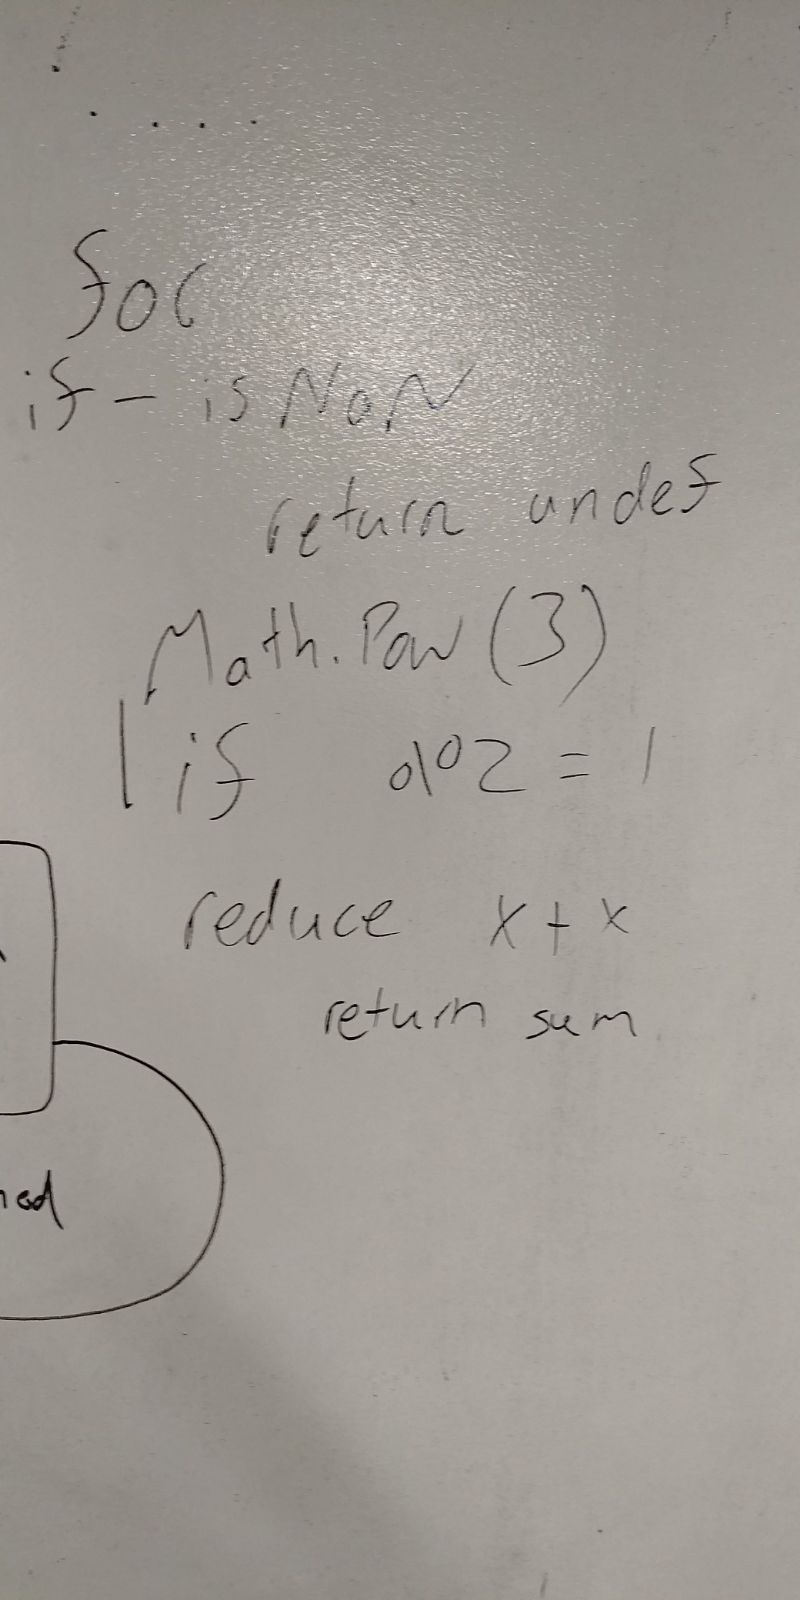 for
if - isNaN
return undef
Math.Pow(3)
if % 2 = 1
reduce x + x
return sum